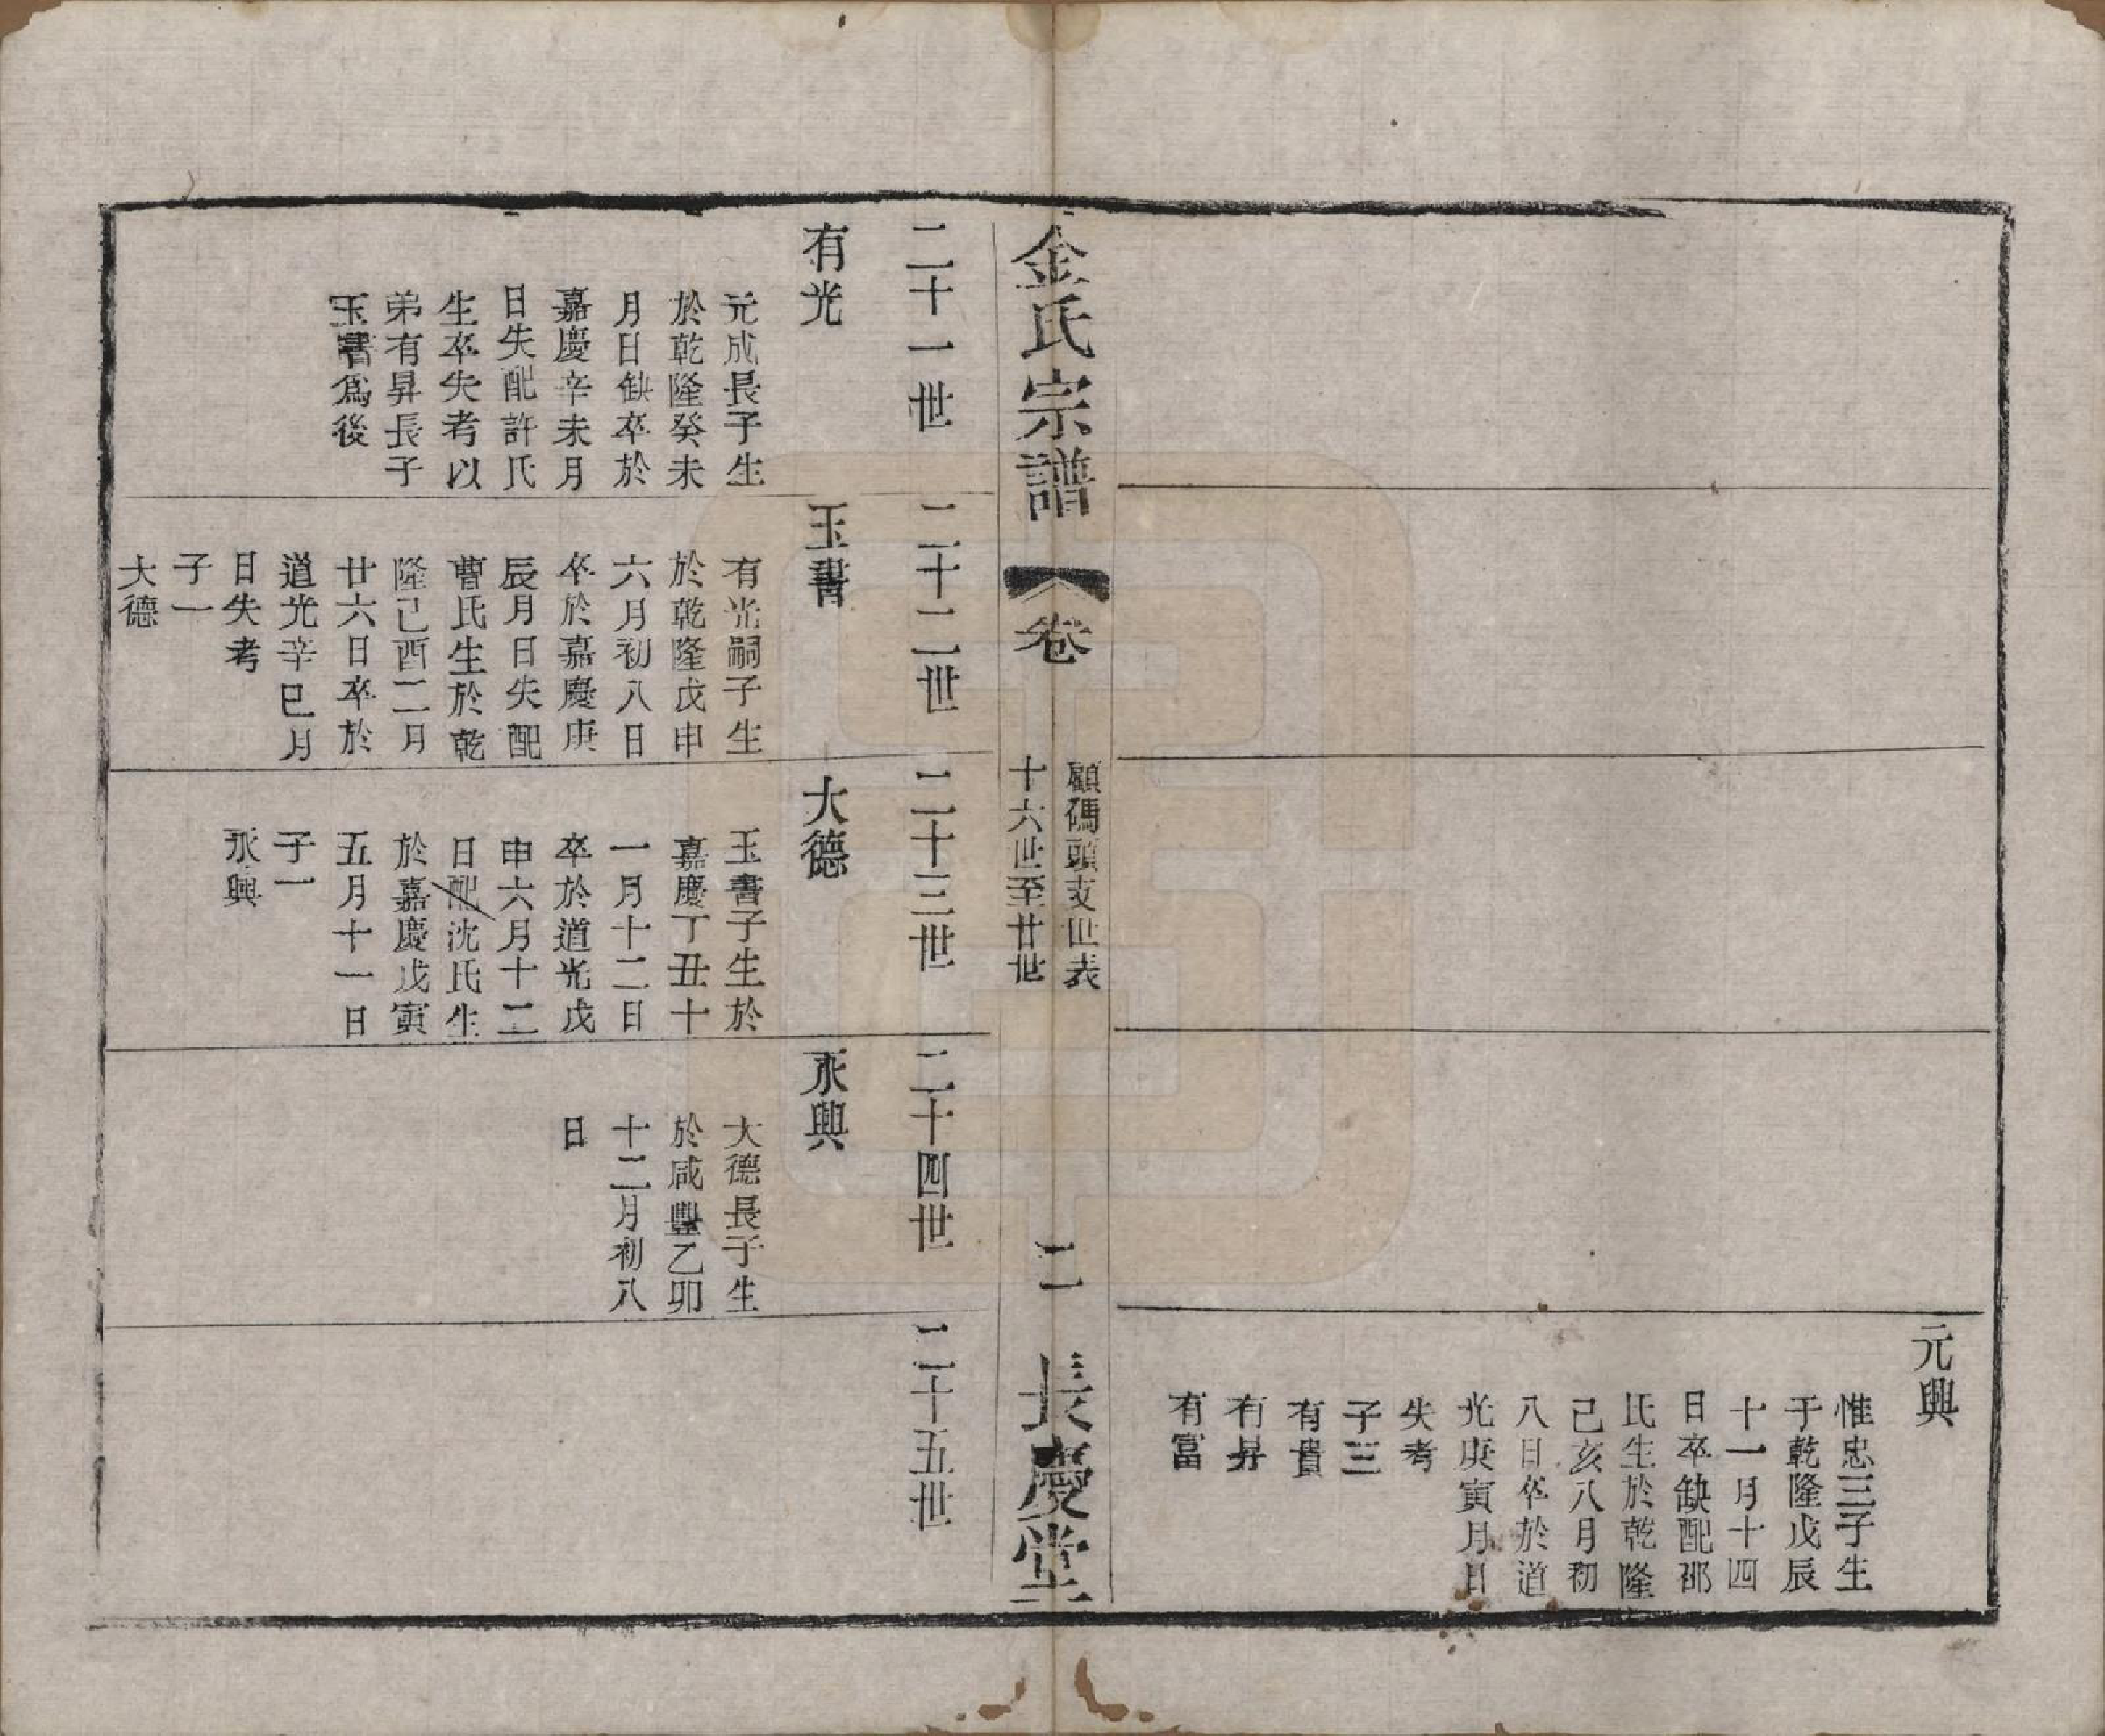 元興
惟忠三子生
于乾隆戊辰
十一月十四
日卒缺配邵
氏生於乾隆
己亥八月初
八日卒於道
光庚寅月日
失考
子三
有貴
有昇
有富
金氏宗譜
卷
顧碼頭支世表
十六世至廿世
二
長慶堂
二十一世
有光
元成長子生
於乾隆癸未
月日缺卒於
嘉慶辛未月
日失配許氏
生卒失考以
弟有昇長子
玉書爲後
二十二世
玉書
有光嗣子生
於乾隆戊申
六月初八日
卒於嘉慶庚
辰月日失配
曹氏生於乾
隆己酉二月
廿六日卒於
道光辛巳月
日失考
子一
大德
二十三世
大德
玉書子生於
嘉慶丁丑十
一月十二日
卒於道光戊
申六月十二
日配沈氏生
於嘉慶戊寅
五月十一日
子一
永興
二十四世
永興
大德長子生
於咸豐乙卯
十二月初八
日
二十五世